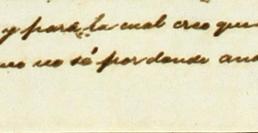 y para la cual creo que
no sé por donde and